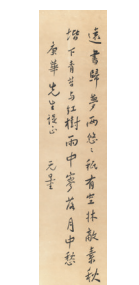 遠書歸夢兩悠〻祇有空牀敵素秋
階下青苔与紅樹雨中寥落月中愁
華先生正
元